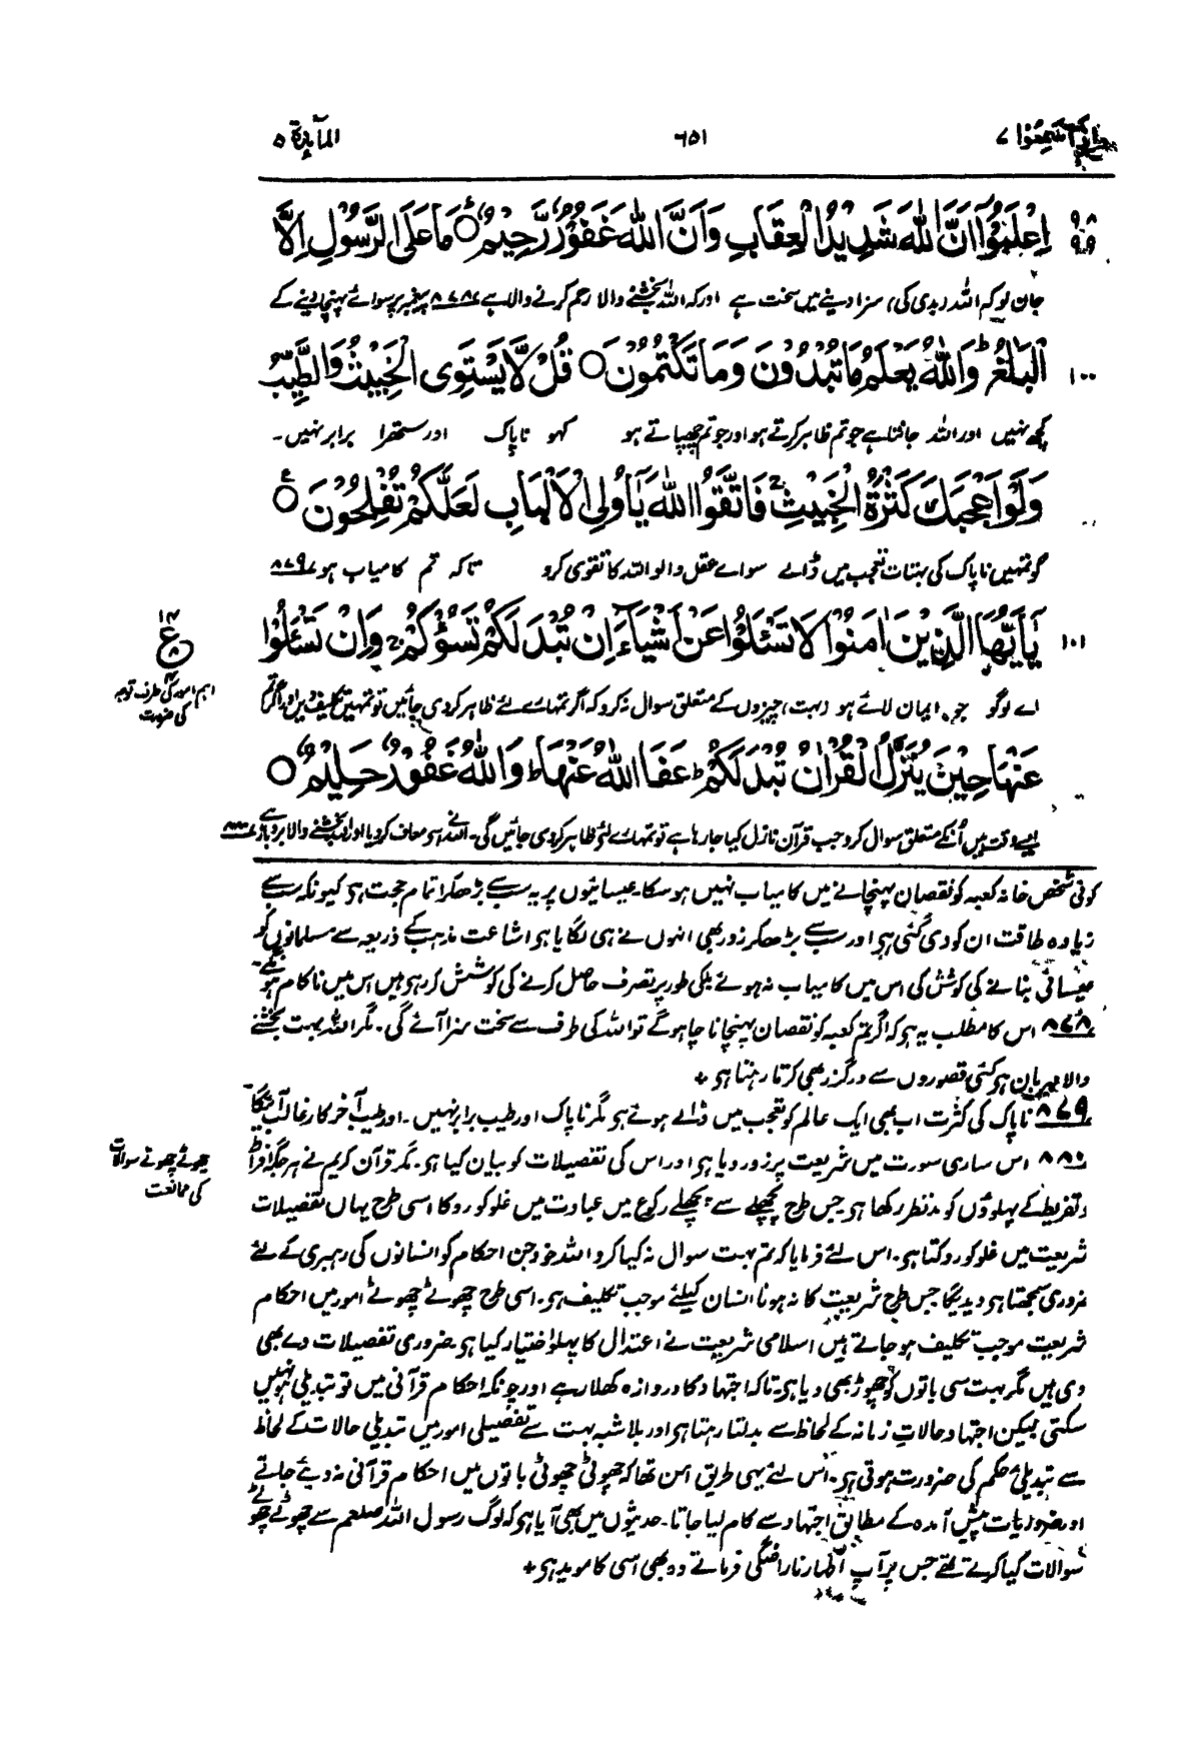 واذا سمعوا ۷ ۶۵۱ المآئدة ۵
۹۸ ۹۹ اِعْلَمُوْٓا اَنَّ اللّٰهَ شَدِيْدُ الْعِقَابِ وَاَنَّ اللّٰهَ غَفُوْرٌ رَّحِيْمٌ ۝ مَا عَلَى الرَّسُوْلِ اِلَّا
جان لو کہ اللہ (بدی کی) سزا دینے میں سخت ہے اور کہ اللہ بخشنے والا رحم کرنے والا ہے ۸۷۸ پیغمبر پر سوائے پہنچا دینے کے
۱۰۰ الْبَلٰغُ ؕ وَاللّٰهُ يَعْلَمُ مَا تُبْدُوْنَ وَمَا تَكْتُمُوْنَ ۝ قُلْ لَّا يَسْتَوِى الْخَبِيْثُ وَالطَّيِّبُ
کچھ نہیں اور اللہ جانتا ہے جو تم ظاہر کرتے ہو اور جو تم چھپاتے ہو کہو ناپاک اور ستھرا برابر نہیں۔
وَلَوْ اَعْجَبَكَ كَثْرَةُ الْخَبِيْثِ ۚ فَاتَّقُوا اللّٰهَ يٰٓاُولِى الْاَلْبَابِ لَعَلَّكُمْ تُفْلِحُوْنَ ۝ۧ
گو تمہیں ناپاک کی بہتات تعجب میں ڈالے سو اے عقل والو اللہ کا تقوی کرو تاکہ تم کامیاب ہو ۸۷۹
۱۰۱ يٰٓاَيُّهَا الَّذِيْنَ اٰمَنُوْا لَا تَسْـَٔلُوْا عَنْ اَشْيَآءَ اِنْ تُبْدَ لَكُمْ تَسُؤْكُمْ ۚ وَاِنْ تَسْـَٔلُوْا
۱۴
ع
اہم امور کی طرف توجہ
کی ضرورت
اے لوگو جو ایمان لائے ہو (بہت) چیزوں کے متعلق سوال نہ کرو کہ اگر تمہارے لئے ظاہر کر دی جائیں تو تمہیں تکلیف دیں اور اگر تم
عَنْهَا حِيْنَ يُنَزَّلُ الْقُرْاٰنُ تُبْدَ لَكُمْ ؕ عَفَا اللّٰهُ عَنْهَا ؕ وَاللّٰهُ غَفُوْرٌ حَلِيْمٌ ۝
ایسے وقت میں اُنکے متعلق سوال کرو جب قرآن نازل کیا جا رہا ہے تو تمہارے لئے ظاہر کر دی جائیں گی۔ اللہ نے معاف کر دیا اور اللہ بخشنے والا بردبار ہے ۸۸۰
کوئی شخص خانہ کعبہ کو نقصان پہنچانے میں کامیاب نہیں ہو سکا۔ عیسائیوں پر یہ سب سے بڑھکر اتمام حجت ہو کیونکہ سب سے
زیادہ طاقت ان کو دی گئی ہو اور سب سے بڑھکر زور بھی انہوں نے ہی لگایا ہو اشاعت مذہب کے ذریعہ سے مسلمانوں کو
عیسائی بنانے کی کوشش کی اس میں کامیاب نہ ہوئے ملکی طور پر تصرف حاصل کرنے کی کوشش کر رہو ہیں اس میں ناکام ہونگے۔
۸۷۸ اس کا مطلب یہ ہو کہ اگر تم کعبہ کو نقصان پہنچانا چاہو گے تو اللہ کی طرف سے سخت سزا آئے گی۔ مگر اللہ بہت بخشنے
والا مہربان ہو کئی قصوروں سے درگزر بھی کرتا رہتا ہو +
۸۷۹ ناپاک کی کثرت اب بھی ایک عالم کو تعجب میں ڈالے ہوئے ہو مگر ناپاک اور طیب برابر نہیں۔ اور طیب آخر کار غالب آئیگا۔
۸۸۰ اس ساری سورت میں شریعت پر زور دیا ہو اور اس کی تفصیلات کو بیان کیا ہو۔ مگر قرآن کریم نے ہر جگہ افراط
چھوٹے چھوٹے سوالات
کی ممانعت
و تفریط کے پہلوؤں کو مد نظر رکھا ہو جس طرح پچھلے سے پچھلے رکوع میں عبادت میں غلو کو روکا اسی طرح یہاں تفصیلات
شریعت میں غلو کو روکتا ہو۔ اس لئے فرمایا کہ تم بہت سوال نہ کیا کرو اللہ خود جن احکام کو انسانوں کی رہبری کے لئے
ضروری سمجھتا ہو دیدیگا جس طرح شریعت کا نہ ہونا انسان کیلئے موجب تکلیف ہو۔ اسی طرح چھوٹے چھوٹے امور میں احکام
شریعت موجب تکلیف ہو جاتے ہیں اسلامی شریعت نے اعتدال کا پہلو اختیار کیا ہو۔ ضروری تفصیلات دے بھی
دی ہیں مگر بہت سی باتوں کو چھوڑ بھی دیا ہو۔ تاکہ اجتہاد کا دروازہ کھلا رہے اور چونکہ احکام قرآنی میں تو تبدیلی ہو نہیں
سکتی لیکن اجتہاد حالات زمانہ کے لحاظ سے بدلتا رہتا ہو اور بلا شبہ بہت سے تفصیلی امور میں تبدیلی حالات کے لحاظ
سے تبدیلئ حکم کی ضرورت ہوتی ہو۔ اس لئے یہی طریق امن تھا کہ چھوٹی چھوٹی باتوں میں احکام قرآنی نہ دیئے جاتے
اور ضروریات پیش آمدہ کے مطابق اجتہاد سے کام لیا جاتا۔ حدیثوں میں بھی آیا ہو کہ لوگ رسول اللہ صلعم سے چھوٹے چھوٹے
سوالات کیا کرتے تھے جس پر آپ اظہار ناراضگی فرماتے وہ بھی اسی کا موید ہو +